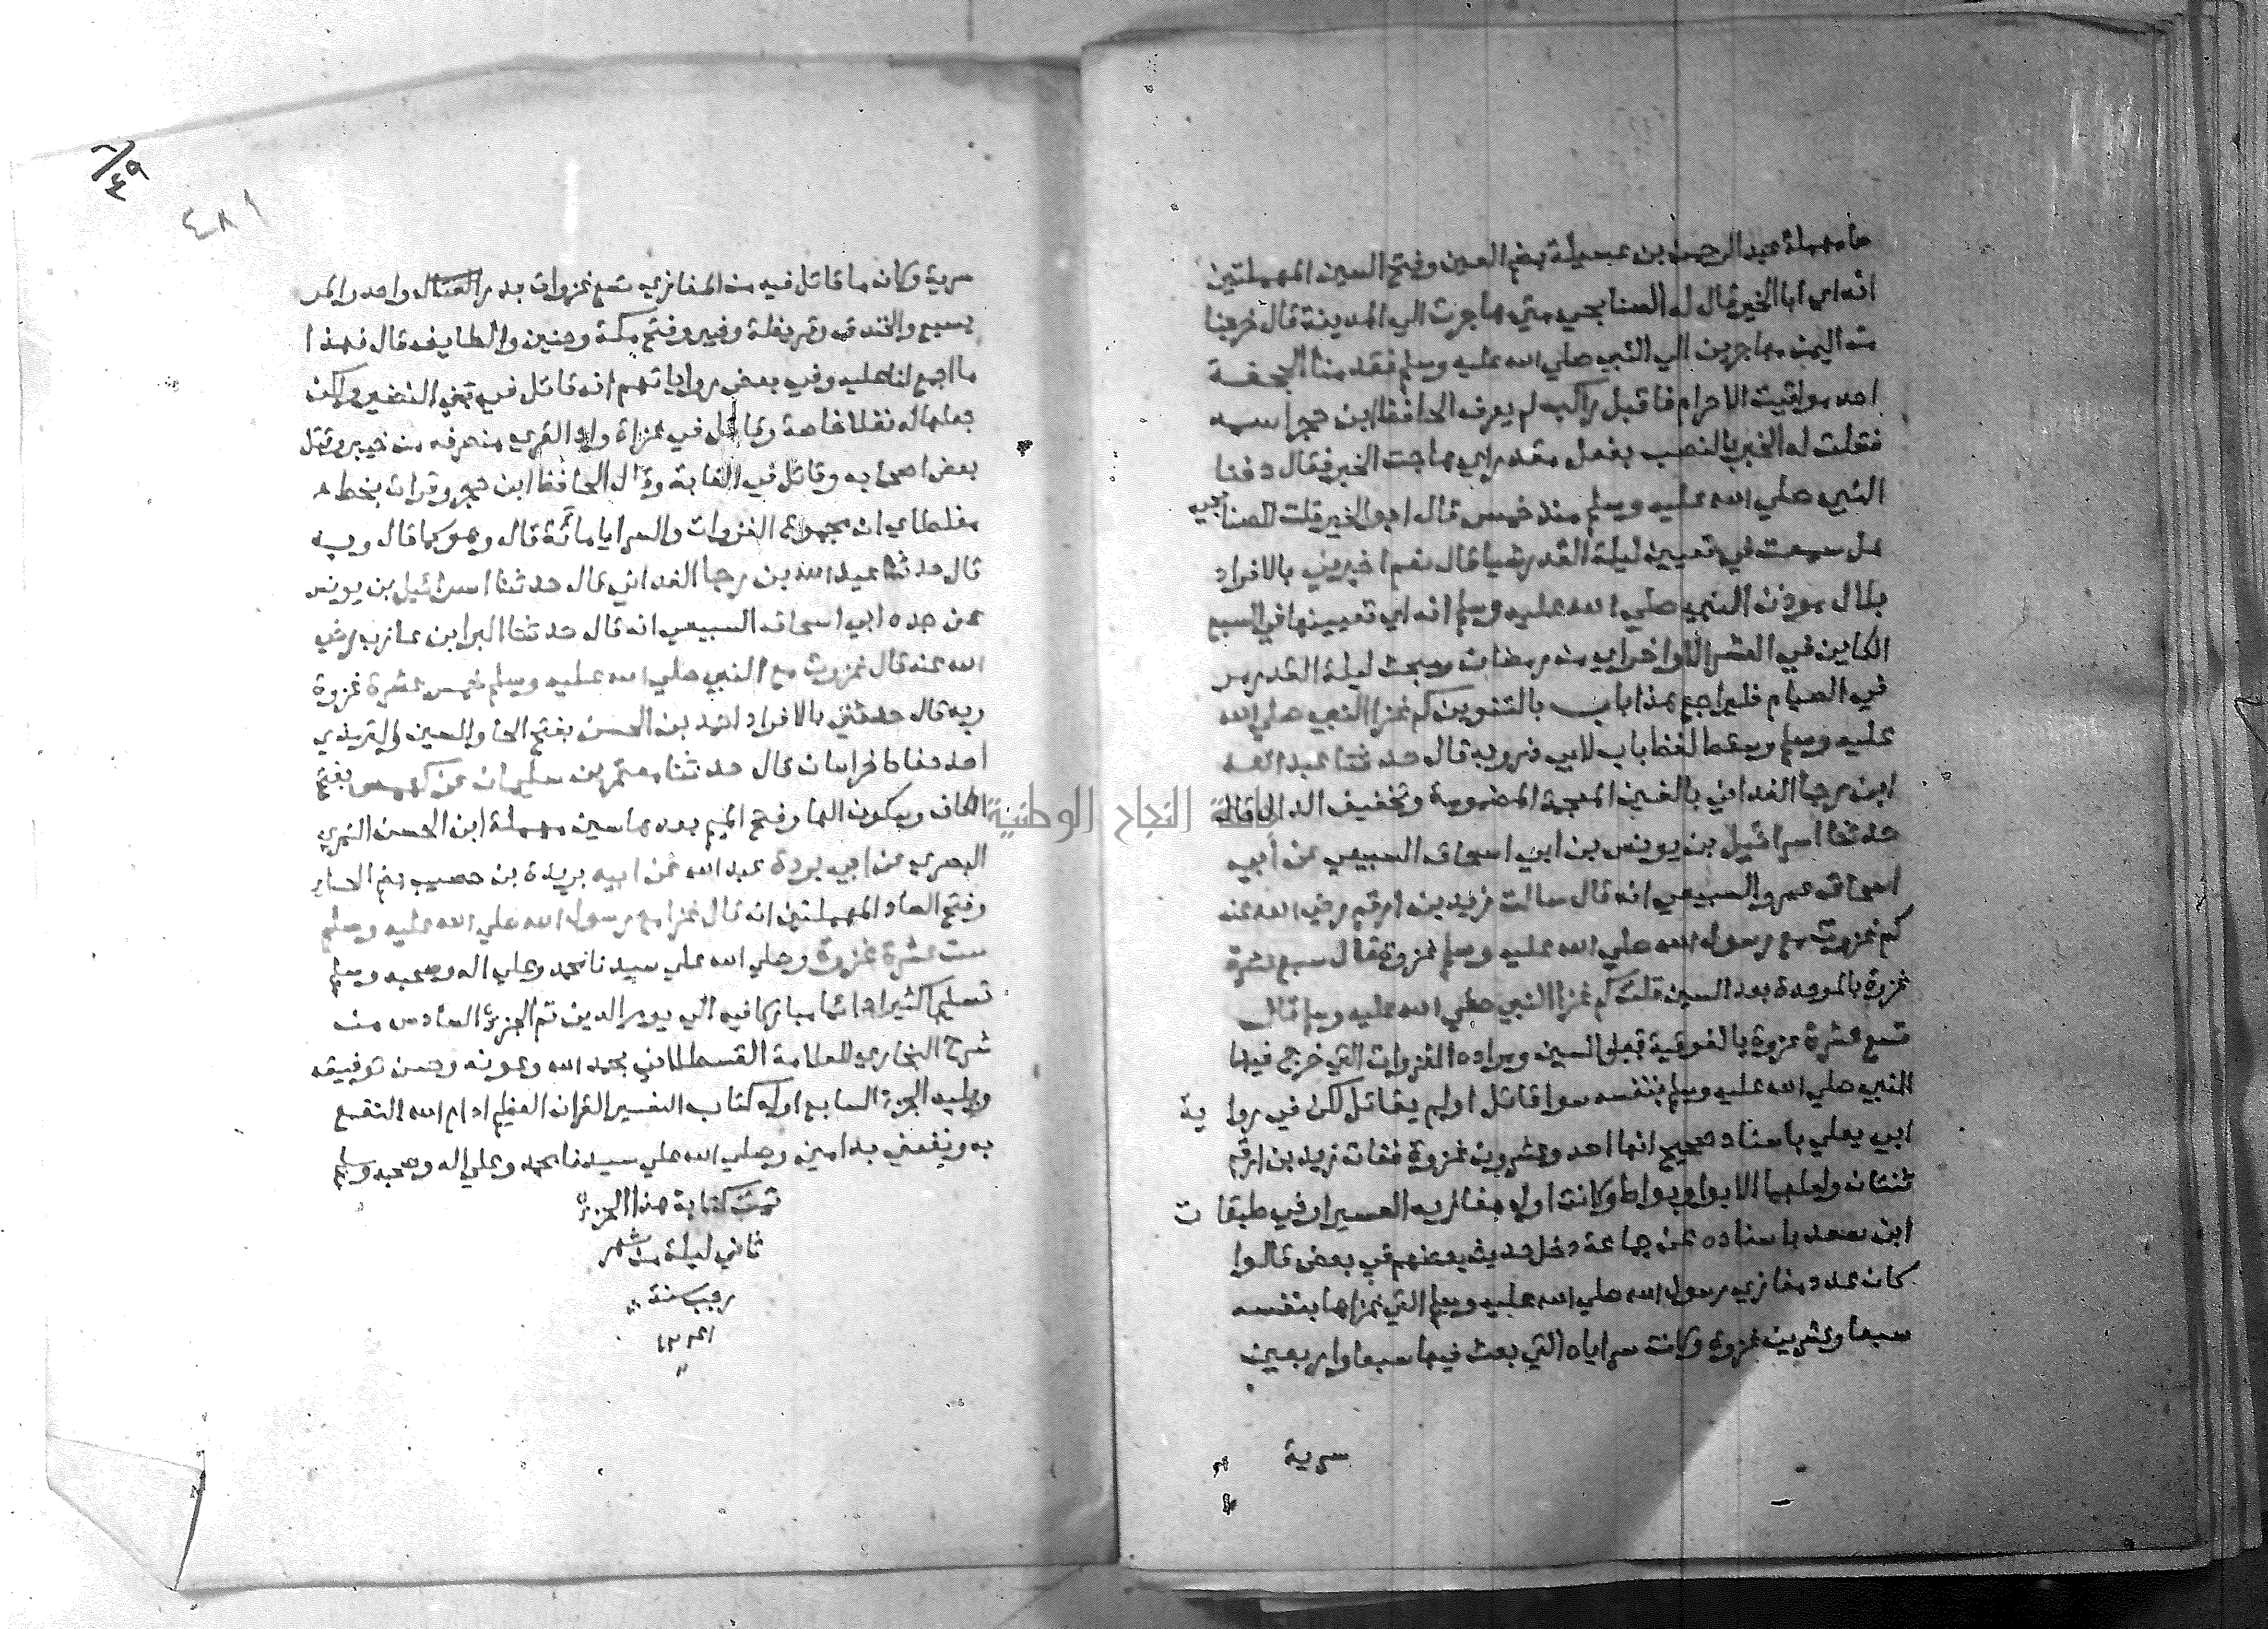 حا مهملة عبد الرحمن بن عسيلة بضم العين وفتح السين المهملتين
انه اي ابا الخير قال له الصنابحي متي هاجرت الي المدينة قال خرجنا
من اليمن مهاجرين الي النبي صلي الله عليه وسلم فقدمنا الجحفة
احد مواقيت الاحرام فاقبل راكب لم يعرف الحافظ ابن حجر اسمه
فقلت له الخبر بالنصب بفعل مقدر اي هات الخبر فقال دفنا
النبي صلي الله عليه وسلم منذ خمس قال ابو الخير قلت للصنابحي
هل سمعت في تعيين ليلة القدر شيا قال نعم اخبرني بالافراد
بلال موذن النبي صلي الله عليه وسلم انه اي تعيينها في السبع
الكاين في العشر الاواخر اي من رمضان ومبحث ليلة القدر مر
في الصيام فليراجع هذا باب بالتنوين كم غزا النبي صلي الله
عليه وسلم وسقط لفظ باب لابي ذر وبه قال حدثنا عبد الله
ابن رجا الغداني بالغين المعجمة المضمومة وتخفيف الدال قال
حدثنا اسرائيل بن يونس بن ابي اسحاق السبيعي عن ابي
اسحاق عمرو السبيعي انه قال سالت زيد بن ارقم رضي الله عنه
كم غزوت مع رسول الله صلي الله عليه وسلم غزوة قال سبع عشرة
غزوة بالموحدة بعد السين قلت كم غزا النبي صلي الله عليه وسلم قال
تسع عشرة غزوة بالفوقية قبل السين ومراده الغزوات التي خرج فيها
النبي صلي الله عليه وسلم بنفسه سوا قاتل او لم يقاتل لكن في رواية
ابي يعلي باسناد صحيح انها احد وعشرون غزوة ففات زيد بن ارقم
ثنتان ولعلهما الابوا وبواط وكانت اول مغازيه العسيرا وفي طبقات
ابن سعد باسناده عن جماعة دخل حديث بعضهم في بعض قالوا
كان عدد مغازي رسول الله صلي الله عليه وسلم التي غزاها بنفسه
سبعا وعشرين غزوة وكانت سراياه التي بعث فيها سبعا واربعين
سرية
٤٨١
سرية وكان ما قاتل فيه من المغازي تسع غزوات بدر القتال واحد والمر
يسيع والخندق وقريظة وخيبر وفتح مكة وحنين والطايف قال فهذا
ما اجمع لنا عليه وفي بعض رواياتهم انه قاتل في بني النضير ولكن
جعلها له نفلا خاصة وقاتل في غزاة وادي القري منصرفه من خيبر وقتل
بعض اصحابه وقاتل في الغابة وقال الحافظ ابن حجر وقرات بخط
مغلطاي ان مجموع الغزوات والسرايا مائة قال وهو كما قال وبه
قال حدثنا عبد الله بن رجا الغداني قال حدثنا اسرائيل بن يونس
عن جده ابي اسحاق السبيعي انه قال حدثنا البرا بن عازب رضي
الله عنه قال غزوت مع النبي صلي الله عليه وسلم خمس عشرة غزوة
وبه قال حدثني بالافراد احمد بن الحسن بفتح الحا والسين الترمذي
احد حفاظ خراسان قال حدثنا معتمر بن سليمان عن كهمس بفتح
الكاف وسكون الها وفتح الميم بعدها سين مهملة ابن الحسن النمري
البصري عن ابي بردة عبد الله عن ابيه بريدة بن حصيب بضم الحا
وفتح الصاد المهملتين انه قال غزا مع رسول الله صلي الله عليه وسلم
ست عشرة غزوة وصلي الله علي سيدنا محمد وعلي اله وصحبه وسلم
تسليما كثيرا دائما مباركا فيه الي يوم الدين تم الجزء السادس من
شرح البخاري للعلامة القسطلاني بحمد الله وعونه وحسن توفيقه
ويليه الجزء السابع اوله كتاب التفسير القران العظيم ادام الله النفع
به ونفعني به امين وصلي الله علي سيدنا محمد وعلي اله وصحبه وسلم
تمت كتابة هذا الجزء
ثاني ليلة من شهر
رجب سنة
جامعة النجاح الوطنية